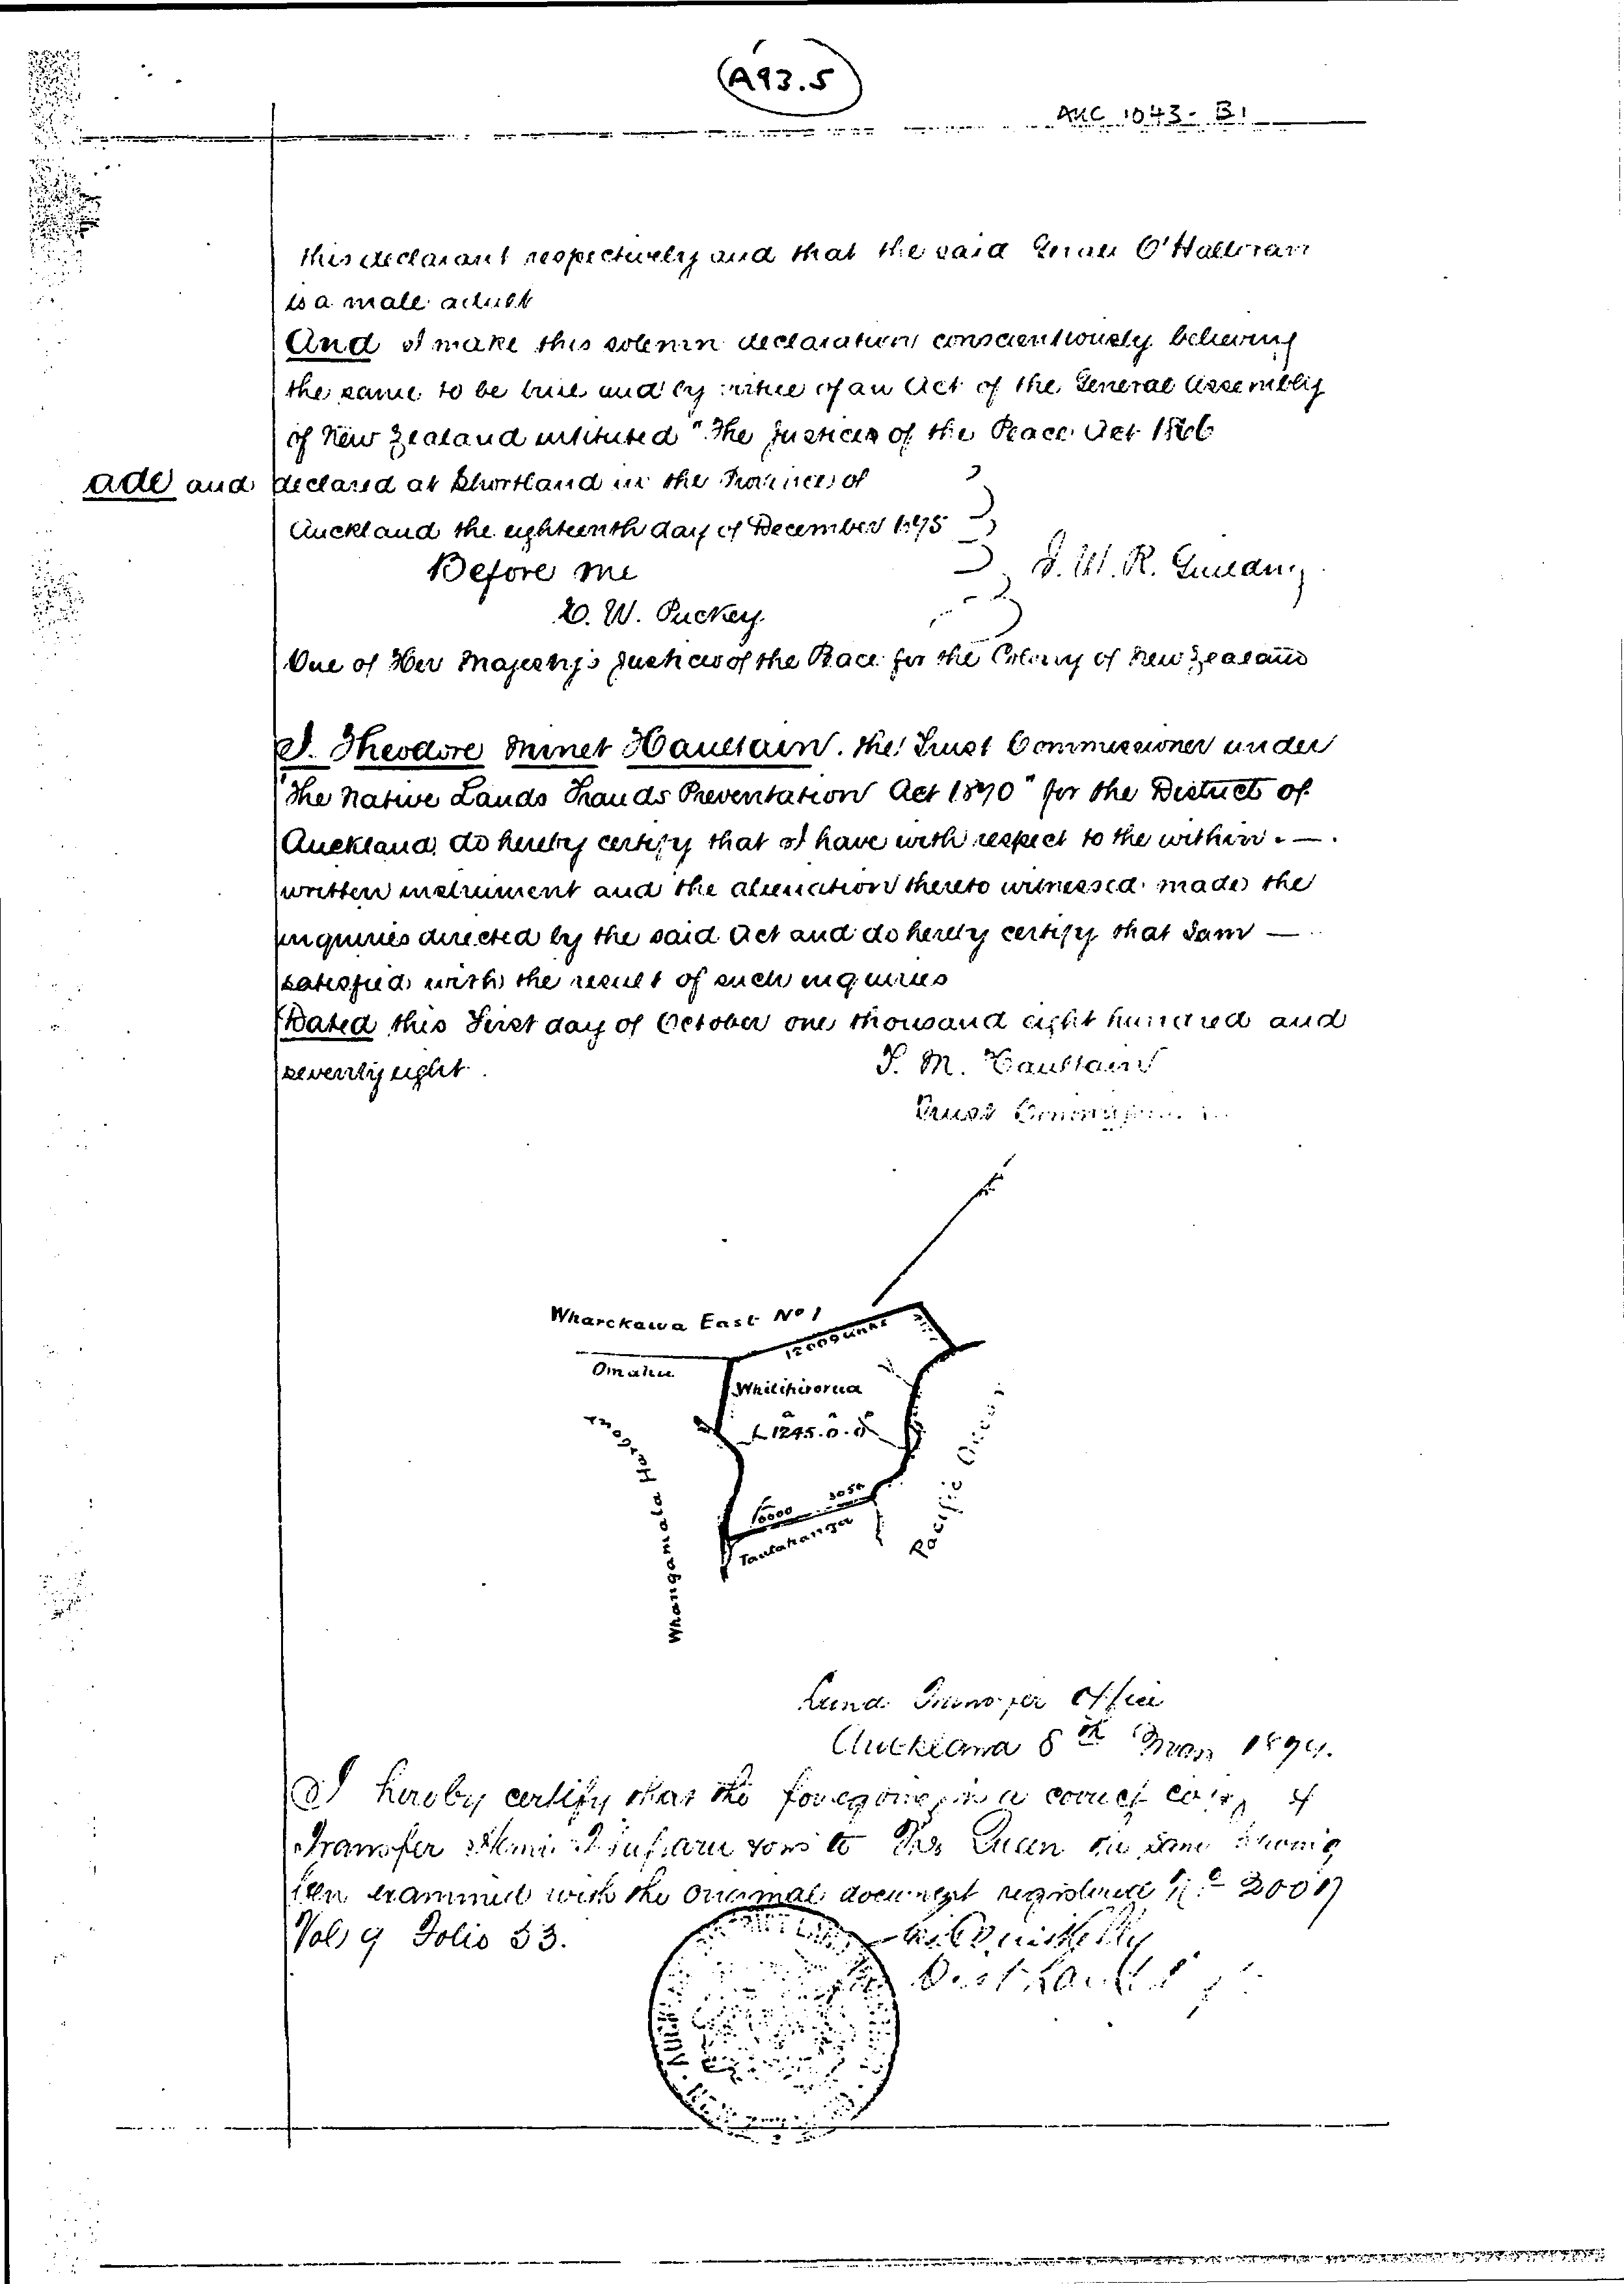 A93.5
AKC 1043-B1
this declarant respectively and that the said O'Halloran
is a male adult
And I make this solemn declaration conscientiously believing
the same to be true and by virtue of an Act of the General Assembly
of New Zealand intituled "The Justices of the Peace Act 1866
ade and declared at Shortland in the Province of
Auckland the eighteenth day of December 1875
Before me
E. W. Puckey
One of Her Majesty's Justices of the Peace for the Colony of New Zealand
I. Theodore Minet Haultain. the Trust Commissioner under
"The Native Lands Frauds Preventation Act 1870" for the District of
Auckland do hereby certify that I have with respect to the within . — .
written instrument and the alienation thereto witnessed made the
inquiries directed by the said Act and do hereby certify that I am —
satisfied with the result of such inquiries
Dated this First day of October one thousand eight hundred and
seventy eight.
T. M. Haultain
Trust Commissioner
Wharekawa East No 1
12009 links
Omahu
Whitihirorua
1245.0.0
Whangamata Harbour
Pacific Ocean
3050
6000
Tautahanga
Land Transfer Office
Auckland 8th May 1894.
I hereby certify that the foregoing is a correct copy of
Transfer to The Queen
examined with the original document registered No
Vol 9 Folio 33.